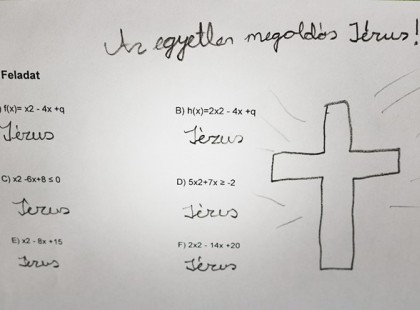 Az egyetlen megoldás Jézus!
Feladat
) f(x)= x2 - 4x +q
Jézus
B) h(x)=2x2 - 4x +q
Jézus
C) x2 -6x+8 ≤ 0
Jézus
D) 5x2+7x ≥ -2
Jézus
E) x2 - 8x +15
Jezus
F) 2x2 - 14x +20
Jézus